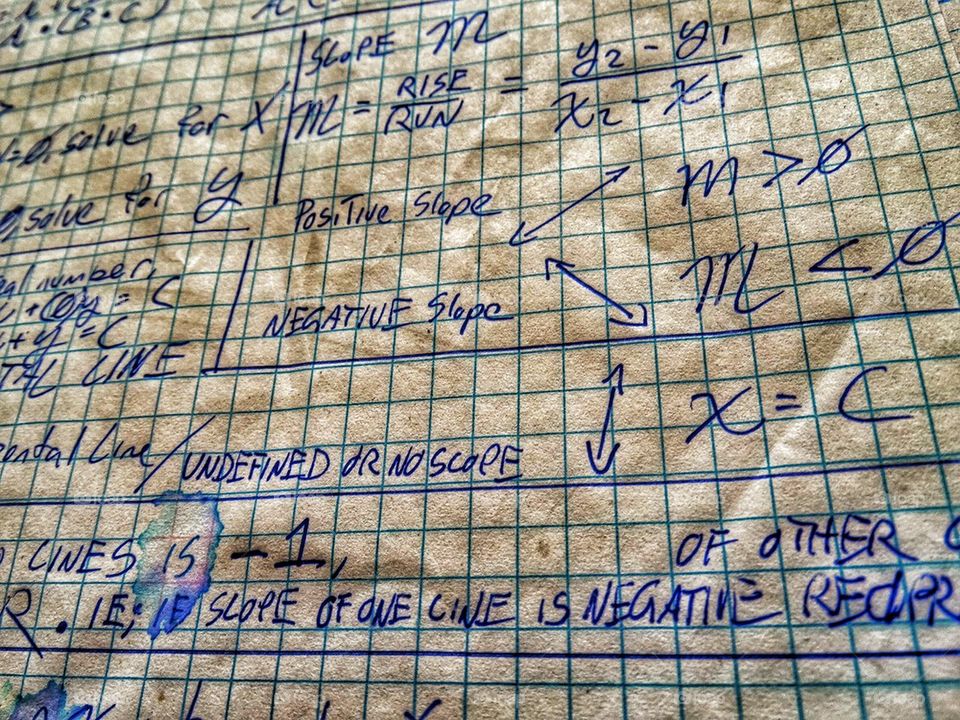 A • (B • C)
SLOPE M
M = RISE / RUN = y₂ - y₁ / x₂ - x₁
solve for X
solve for y
Positive Slope M > 0
number,
y = C
+ y = C
NEGATIVE Slope M < 0
LINE
Line / UNDEFINED OR NO SCOPE X = C
LINES IS -1, OF OTHER
R. IE; IE SLOPE OF ONE LINE IS NEGATIVE RECIPR